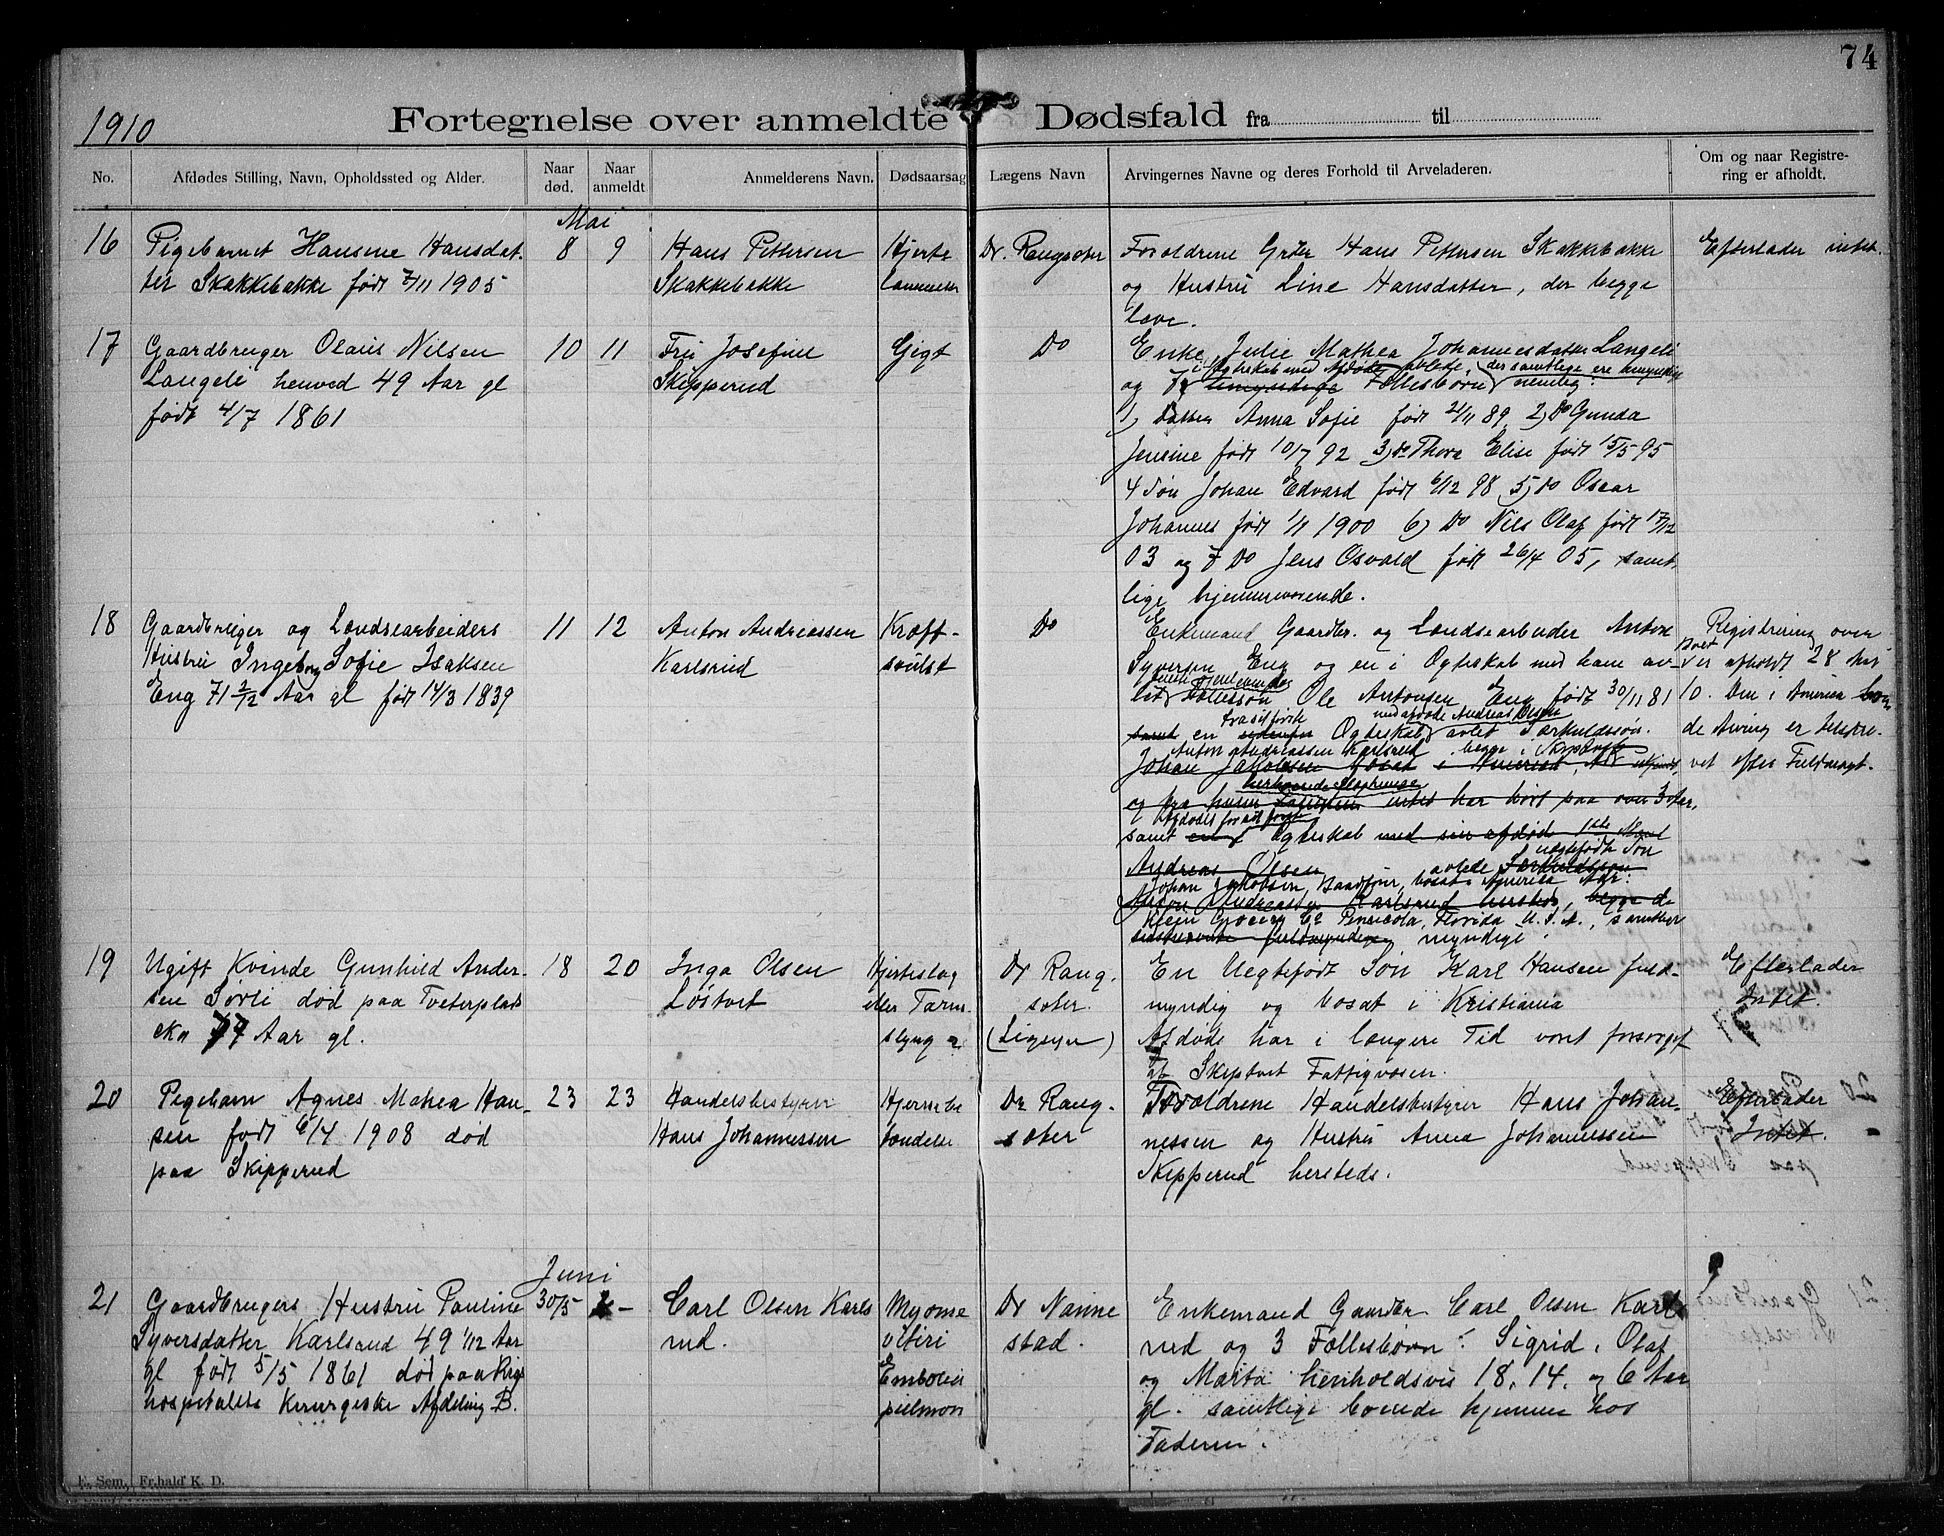 74
1910
Fortegnelse over anmeldte Dødsfald fra til
No.
Afdødes Stilling, Navn, Opholdssted og Alder.
Naar død.
Naar anmeldt
Anmelderens Navn.
Dødsaarsag
Lægens Navn
Arvingernes Navne og deres Forhold til Arveladeren.
Om og naar Registre-
ring er afholdt.
Mai
16 Pigebarnet Hansine Hansdat-
ter Skakkebakke født 7/11 1905
8
9
Hans Pettersen
Skakkebakke
Hjerte
lammelse
Dr. Rangsæter
Forældrene Grdbr Hans Pettersen Skakkebakke
og Hustru Line Hansdatter, der begge
leve.
Efterlader intet.
17 Gaardbruger Olaus Nilsen
Langeli henved 49 Aar gl
født 4/7 1861
10
11
Fru Josefine
Skipperud
Gigt
Do
Enke Julie Mathea Johannesdatter Langeli
i Ægteskab med Afdøde avlede, der samtlige ere umyndige
og 7 umyndige Fællesbørn nemlig:
1) Datter Anna Sofie født 21/11 89 2) Do Gunda
Jensine født 10/7 92 3) Do Thora Elise født 15/5 95
4 Søn Johan Edvard født 6/12 98 5) Do Oscar
Johannes født 1/11 1900 6) Do Nils Olaf født 17/12
03 og 7 Do Jens Osvald født 26/4 05, samt-
lige hjemmeværende.
18 Gaardbruger og Landsearbeiders
Hustru Ingeborg Sofie Isaksen
Eng 71 2/12 Aar gl født 14/3 1839
11
12
Anton Andreassen
Karlsrud
Kræft-
svulst
Do
Enkemand Gaardbr. og Landsearbeider Anton
Syversen Eng og en i Ægteskab med ham av-
let Fællessøn Ole Antonsen Eng født 30/11 81
fraskilt første med afdøde Andreas Olsen
samt en Ægteskab avlet Særkuldssøn.
Anton Andreassen Karlsrud begge i Skiptvet
Johan Jakobsen bosat i Amerika,
og fra hvem intet har hørt paa over 3 Aar,
Afdødes før
samt en i Ægteskab med sin afdøde 1ste Mand
uægtefødte Søn
Andreas Olsen avlede Særkuldssøn
Johan Jakobsen, bosat i Amerika Adr:
Anton Andreassen Karlsrud hersteds, begge de
Klein Grocery Co Pensicola, Florida U.S.A., samtlige
myndige.
Registrering over
Boet
er afholdt 28 Mai
10. Den i Amerika boen-
de Arving er tilskre-
vet efter Fuldmagt.
19 Ugift Kvinde Gunhild Ander-
sen Sørli død paa Tveterplads
cka 77 Aar gl.
18
20
Inga Olsen
Løstvet
Hjerteslag
eller Tarm-
slyng
Dr Rang-
sæter
(Ligsyn)
En Uegtefødt Søn Karl Hansen fuld-
myndig og bosat i Kristiania
Afdøde har i længere Tid vært forsørget
af Skiptvet Fattigvæsen.
Efterlader
Intet.
20 Pigebarn Agnes Mathea Han-
sen født 6/4 1908 død
paa Skipperud
23
23
Handelsbestyrer
Hans Johannessen
Hjernebe
tændelse
Dr Rang-
sæter
Forældrene Handelsbestyrer Hans Johan-
nessen og Hustru Anna Johannessen
Skipperud hersteds.
Efterlader
Intet.
Juni
21 Gaardbrugers Hustru Pauline
Syversdatter Karlsrud 49 1/12 Aar
gl født 5/5 1861 død paa Rigs
hospitalets Kirurgiske Afdeling B.
30/5
Carl Olsen Karls
rud.
Myoma
uteri
Embolia
pulmon
Dr Nanne
stad.
Enkemand Gaardbr Carl Olsen Karls
rud og 3 Fællesbørn: Sigrid, Olaf
og Marta henholdsvis 18, 14, og 6 Aar
gl. samtlige boende hjemme hos
Faderen.
E. Sem, Fr.hald K. D.